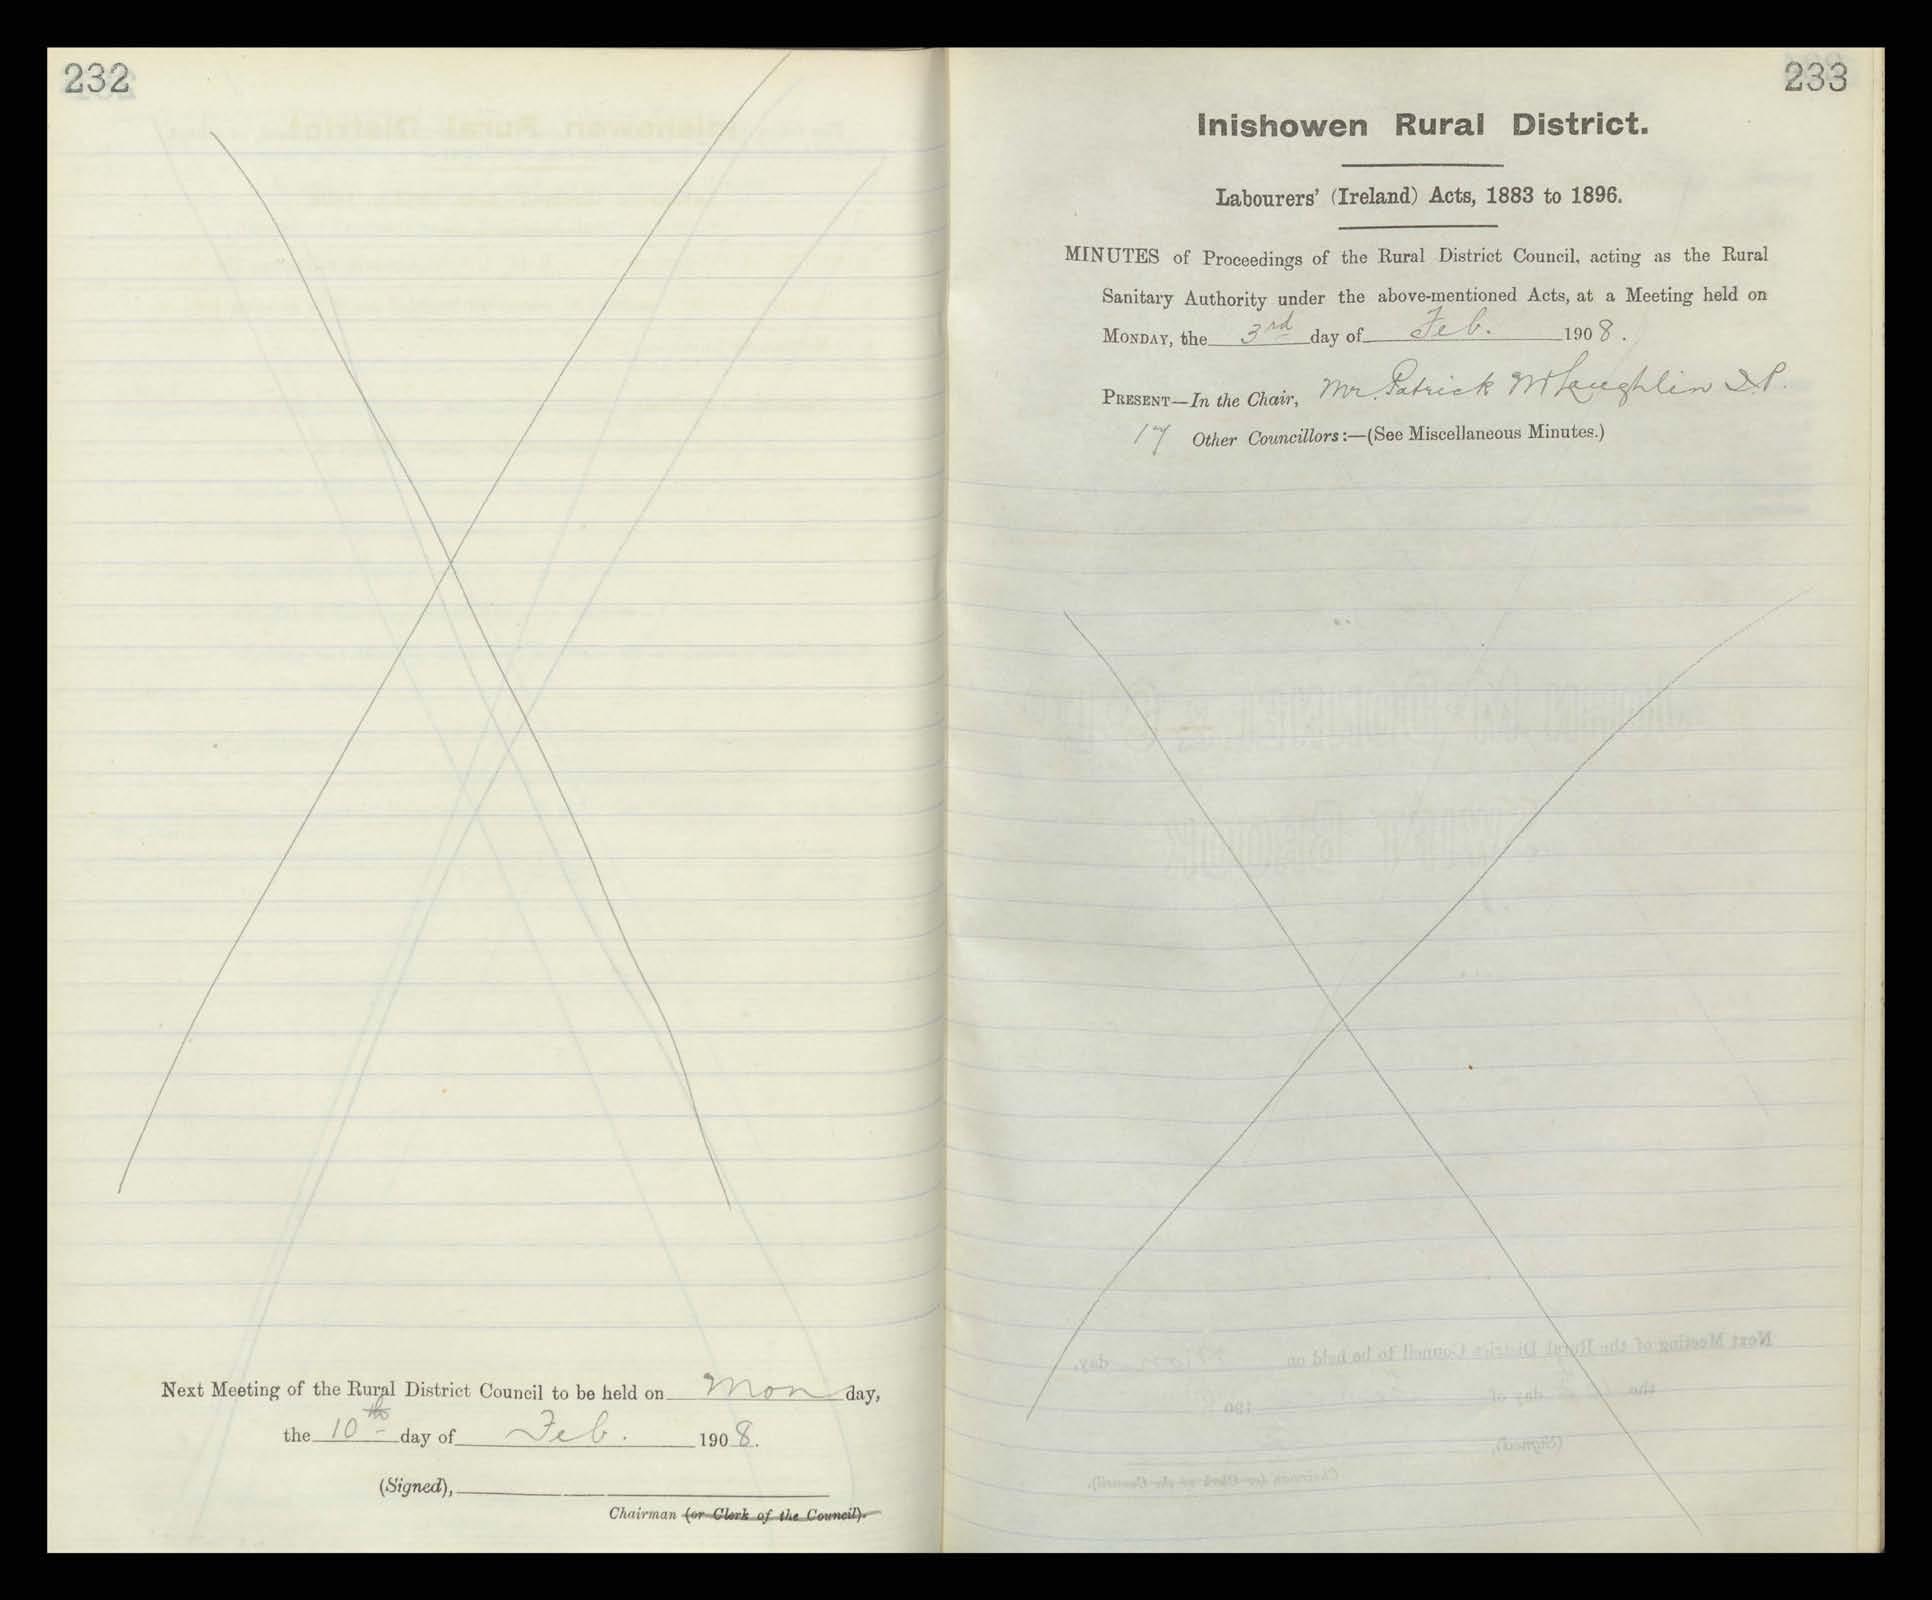 232
Next Meeting of the Rural District Council to be held on Mon day,
the 10th day of Feb. 1908.
(Signed),
Chairman (or Clerk of the Council).
233
Inishowen Rural District.
Labourers' (Ireland) Acts, 1883 to 1896.
MINUTES of Proceedings of the Rural District Council, acting as the Rural
Sanitary Authority under the above-mentioned Acts, at a Meeting held on
MONDAY, the 3rd day of Feb. 1908.
PRESENT—In the Chair, Mr. Patrick McLaughlin J.P.
17 Other Councillors:—(See Miscellaneous Minutes.)